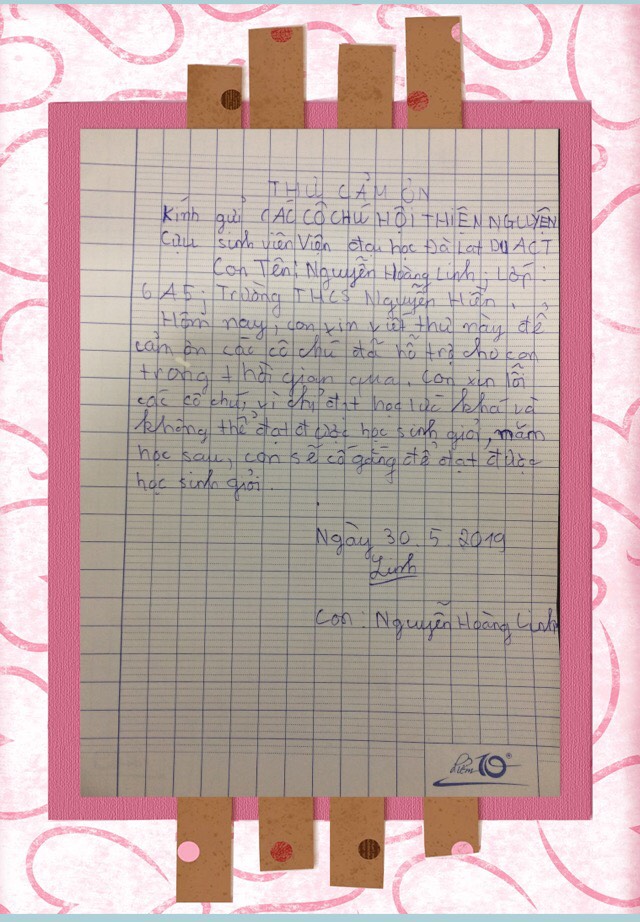 THƯ CẢM ƠN
Kính gửi CÁC CÔ CHÚ HỘI THIỆN NGUYỆN
Cựu sinh viên Viện đại học Đà Lạt DU ACT
Con Tên: Nguyễn Hoàng Linh; Lớp:
6A5; Trường THCS Nguyễn Hiền.
Hôm nay, con xin viết thư này để
cảm ơn các cô chú đã hỗ trợ cho con
trong thời gian qua. Con xin lỗi
các cô chú, vì chỉ đạt học lực khá và
không thể đạt được học sinh giỏi, năm
học sau, con sẽ cố gắng để đạt được
học sinh giỏi.
Ngày 30.5.2019
Linh
Con: Nguyễn Hoàng Linh
Điểm 10